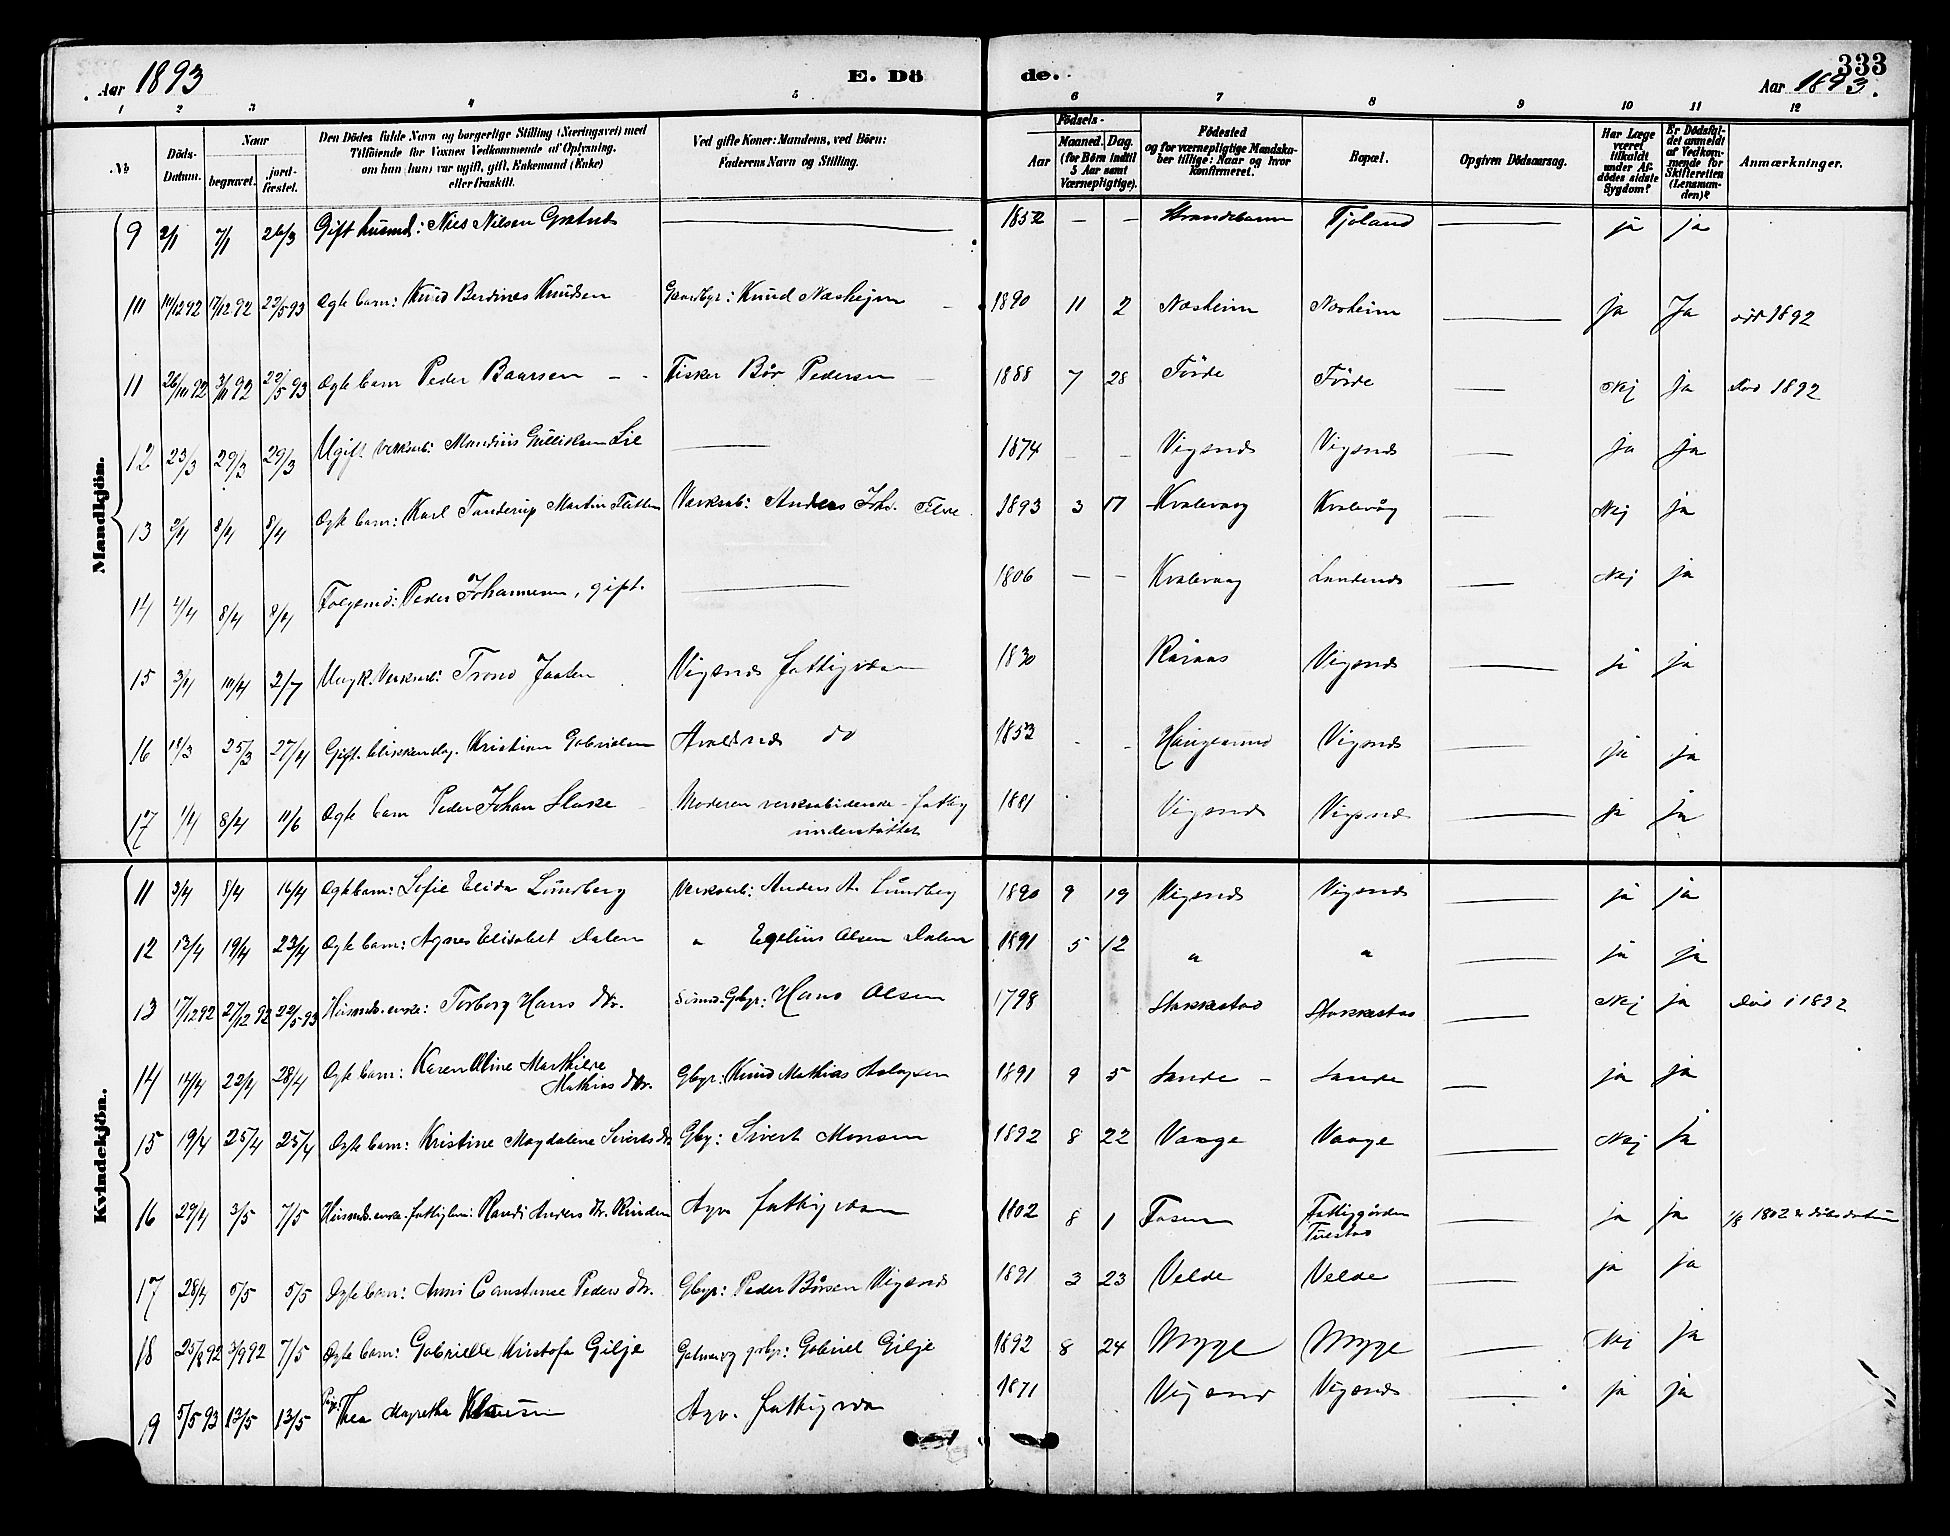 333
Aar 1893
E. Döde.
Aar 1893.
1 2 3 4 5 6 7 8 9 10 11 12
No
Döds-Datum.
Naar begravet. jordfæstet.
Den Dödes fulde Navn og borgerlige Stilling (Næringsvei) med Tilföiende for Voxnes Vedkommende af Oplysning, om han (hun) var ugift, gift, Enkemand (Enke) eller fraskilt.
Ved gifte Koner: Mandens, ved Börn: Faderens Navn og Stilling.
Födsels-
Aar Maaned. Dag. (for Børn indtil 5 Aar samt Værnepligtige).
Födested og for værnepligtige Mandskaber tillige: Naar og hvor konfirmeret.
Bopæl.
Opgiven Dödsaarsag.
Har Læge været tilkaldt under Afdødes sidste Sygdom?
Er Dødsfaldet anmeldt af Vedkommende for Skifteretten (Lensmanden)?
Anmærkninger.
Mandkjön.
9 2/1 7/1 26/3 Gift husmd: Nils Nilsen 1852 – – Strandebarm Fjoland ja ja
10 17/12 92 22/5 93 Ægte barn: Knud Berdines Knudsen Gaardbgr: Knud Næsheim 1890 11 2 Næsheim Næsheim ja Ja död 1892
11 22/5 93 Ægte barn Peder Baarsen Fisker Bår Pedersen 1888 7 28 Förde Förde Nej Ja död 1892
12 23/3 29/3 29/3 Ugift verksarb: Gulliksen Lie 1874 – – Vigsnæs Vigsnæs ja ja
13 2/4 8/4 8/4 Ægte barn: Karl Tanderup Martin Verksarb: Anders Joh. 1893 3 17 Kvalevaag Kvalevåg Nej ja
14 4/4 8/4 8/4 Folgemd: Peder Johannesen, gift. 1806 – – Kvalevaag Nej ja
15 3/4 10/4 2/7 Verksarb: Trond Vigsnæs fattigvæsen 1830 Vigsnæs ja ja
16 18/3 25/3 27/4 Gift. blikkenslag. Kristian Gabrielsen Avaldsnæs do 1853 – – Haugesund Vigsnæs ja ja
17 1/4 8/4 11/6 Ægte barn Peder Johan Moderen verksarbiderske – fattig
understøttet 1881 Vigsnæs Vigsnæs ja ja
Kvindekjön.
11 3/4 8/4 16/4 Ægte barn: Sofie Elida Lundberg Verksarb: Anders A. Lundberg 1890 9 19 Vigsnæs Vigsnæs ja ja
12 13/4 19/4 23/4 Ægte barn: Agnes Elisabet Dalen " Olsen Dalen 1891 5 12 " " ja ja
13 17/12 92 27/12 92 22/5 93 Husmds. enke: Torborg Hans dtr. Hans Olsen 1798 Stakkestad Stakkestad Nej ja död i 1892
14 14/4 22/4 28/4 Ægte barn: Karen Oline Mathilde
Mathias dtr. Gbgr: Knud Mathias Aslagsen 1891 9 5 Sande – Sande ja ja
15 19/4 25/4 25/4 Ægte barn: Kristine Magdalene Siverts dtr Gbgr: Sivert Monsen 1892 8 22 Vaage Vaage Nej Ja
16 29/4 3/5 7/5 Husmds. enke. fattiglem: Randi Anders dtr. fattigvæsen 1802 8 1 Fosen Fattiggården
Tuestad ja ja 1/8 1802 er
17 28/4 5/5 5/5 Ægte barn: Anni Constanse Peders dtr. Gbgr: Peder Bårsen Vigsnæs 1891 3 23 Velde Velde ja ja
18 25/8 92 3/9 92 7/5 Ægte barn: Gabrielle Kristofa Gilje gbgr: Gabriel Gilje 1892 8 24 Mygge Mygge Nej ja
19 5/5 93 13/5 13/5 Pige: Thea Magretha fattigvæsen 1871 Vigsnæs Vigsnæs ja ja